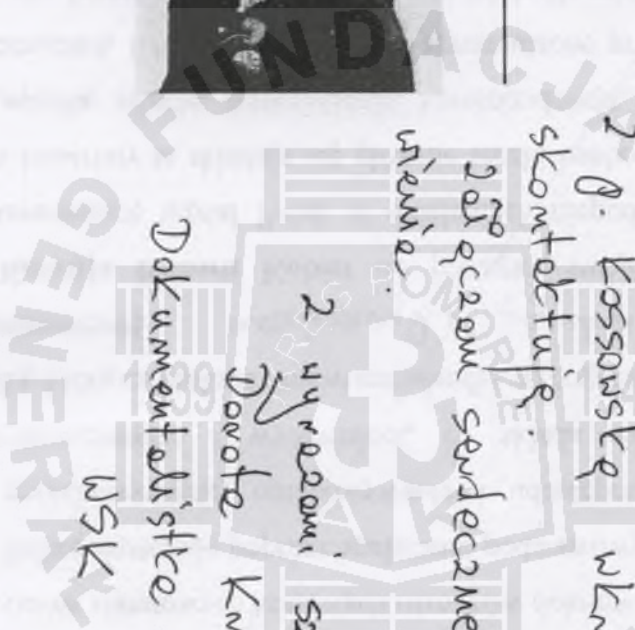 Z P. Kossowską wkr
skontaktuję.
Załączam serdeczne
wienia.
Z wyrazami sz
Dorota Kr
Dokumentalistka
WSK
FUNDACJA
GENERAŁ
1939
ARES POMORZE
AK